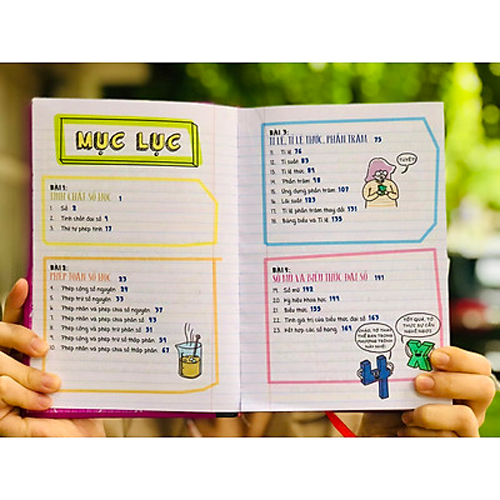 MỤC LỤC
BÀI 1:
TÍNH CHẤT SỐ HỌC 1
1. Số 2
2. Tính chất đại số 9
3. Thứ tự phép tính 17
BÀI 2:
PHÉP TOÁN SỐ HỌC 23
4. Phép cộng số nguyên 24
5. Phép trừ số nguyên 33
6. Phép nhân và phép chia số nguyên 37
7. Phép nhân và phép chia phân số 43
8. Phép cộng và phép trừ phân số 51
9. Phép cộng và phép trừ số thập phân 59
10. Phép nhân và phép chia số thập phân 67
BÀI 3:
TỈ LỆ, TỈ LỆ THỨC, PHẦN TRĂM 75
11. Tỉ lệ 76
12. Tỉ suất 83
13. Tỉ lệ thức 89
14. Phần trăm 98
15. Ứng dụng phần trăm 107
16. Lãi suất 123
17. Tỉ lệ phần trăm thay đổi 131
18. Bảng biểu và tỉ lệ 135
TUYỆT!
BÀI 4:
SỐ MŨ VÀ BIỂU THỨC ĐẠI SỐ 141
19. Số mũ 142
20. Ký hiệu khoa học 149
21. Biểu thức 155
22. Tính giá trị của biểu thức đại số 163
23. Kết hợp các số hạng 169
CHÀO, TỚ THAY
THẾ BẠN TRONG
PHƯƠNG TRÌNH
NÀY NHÉ!
TỐT QUÁ, TỚ
THỰC SỰ CẦN
NGHỈ NGƠI!
4
X